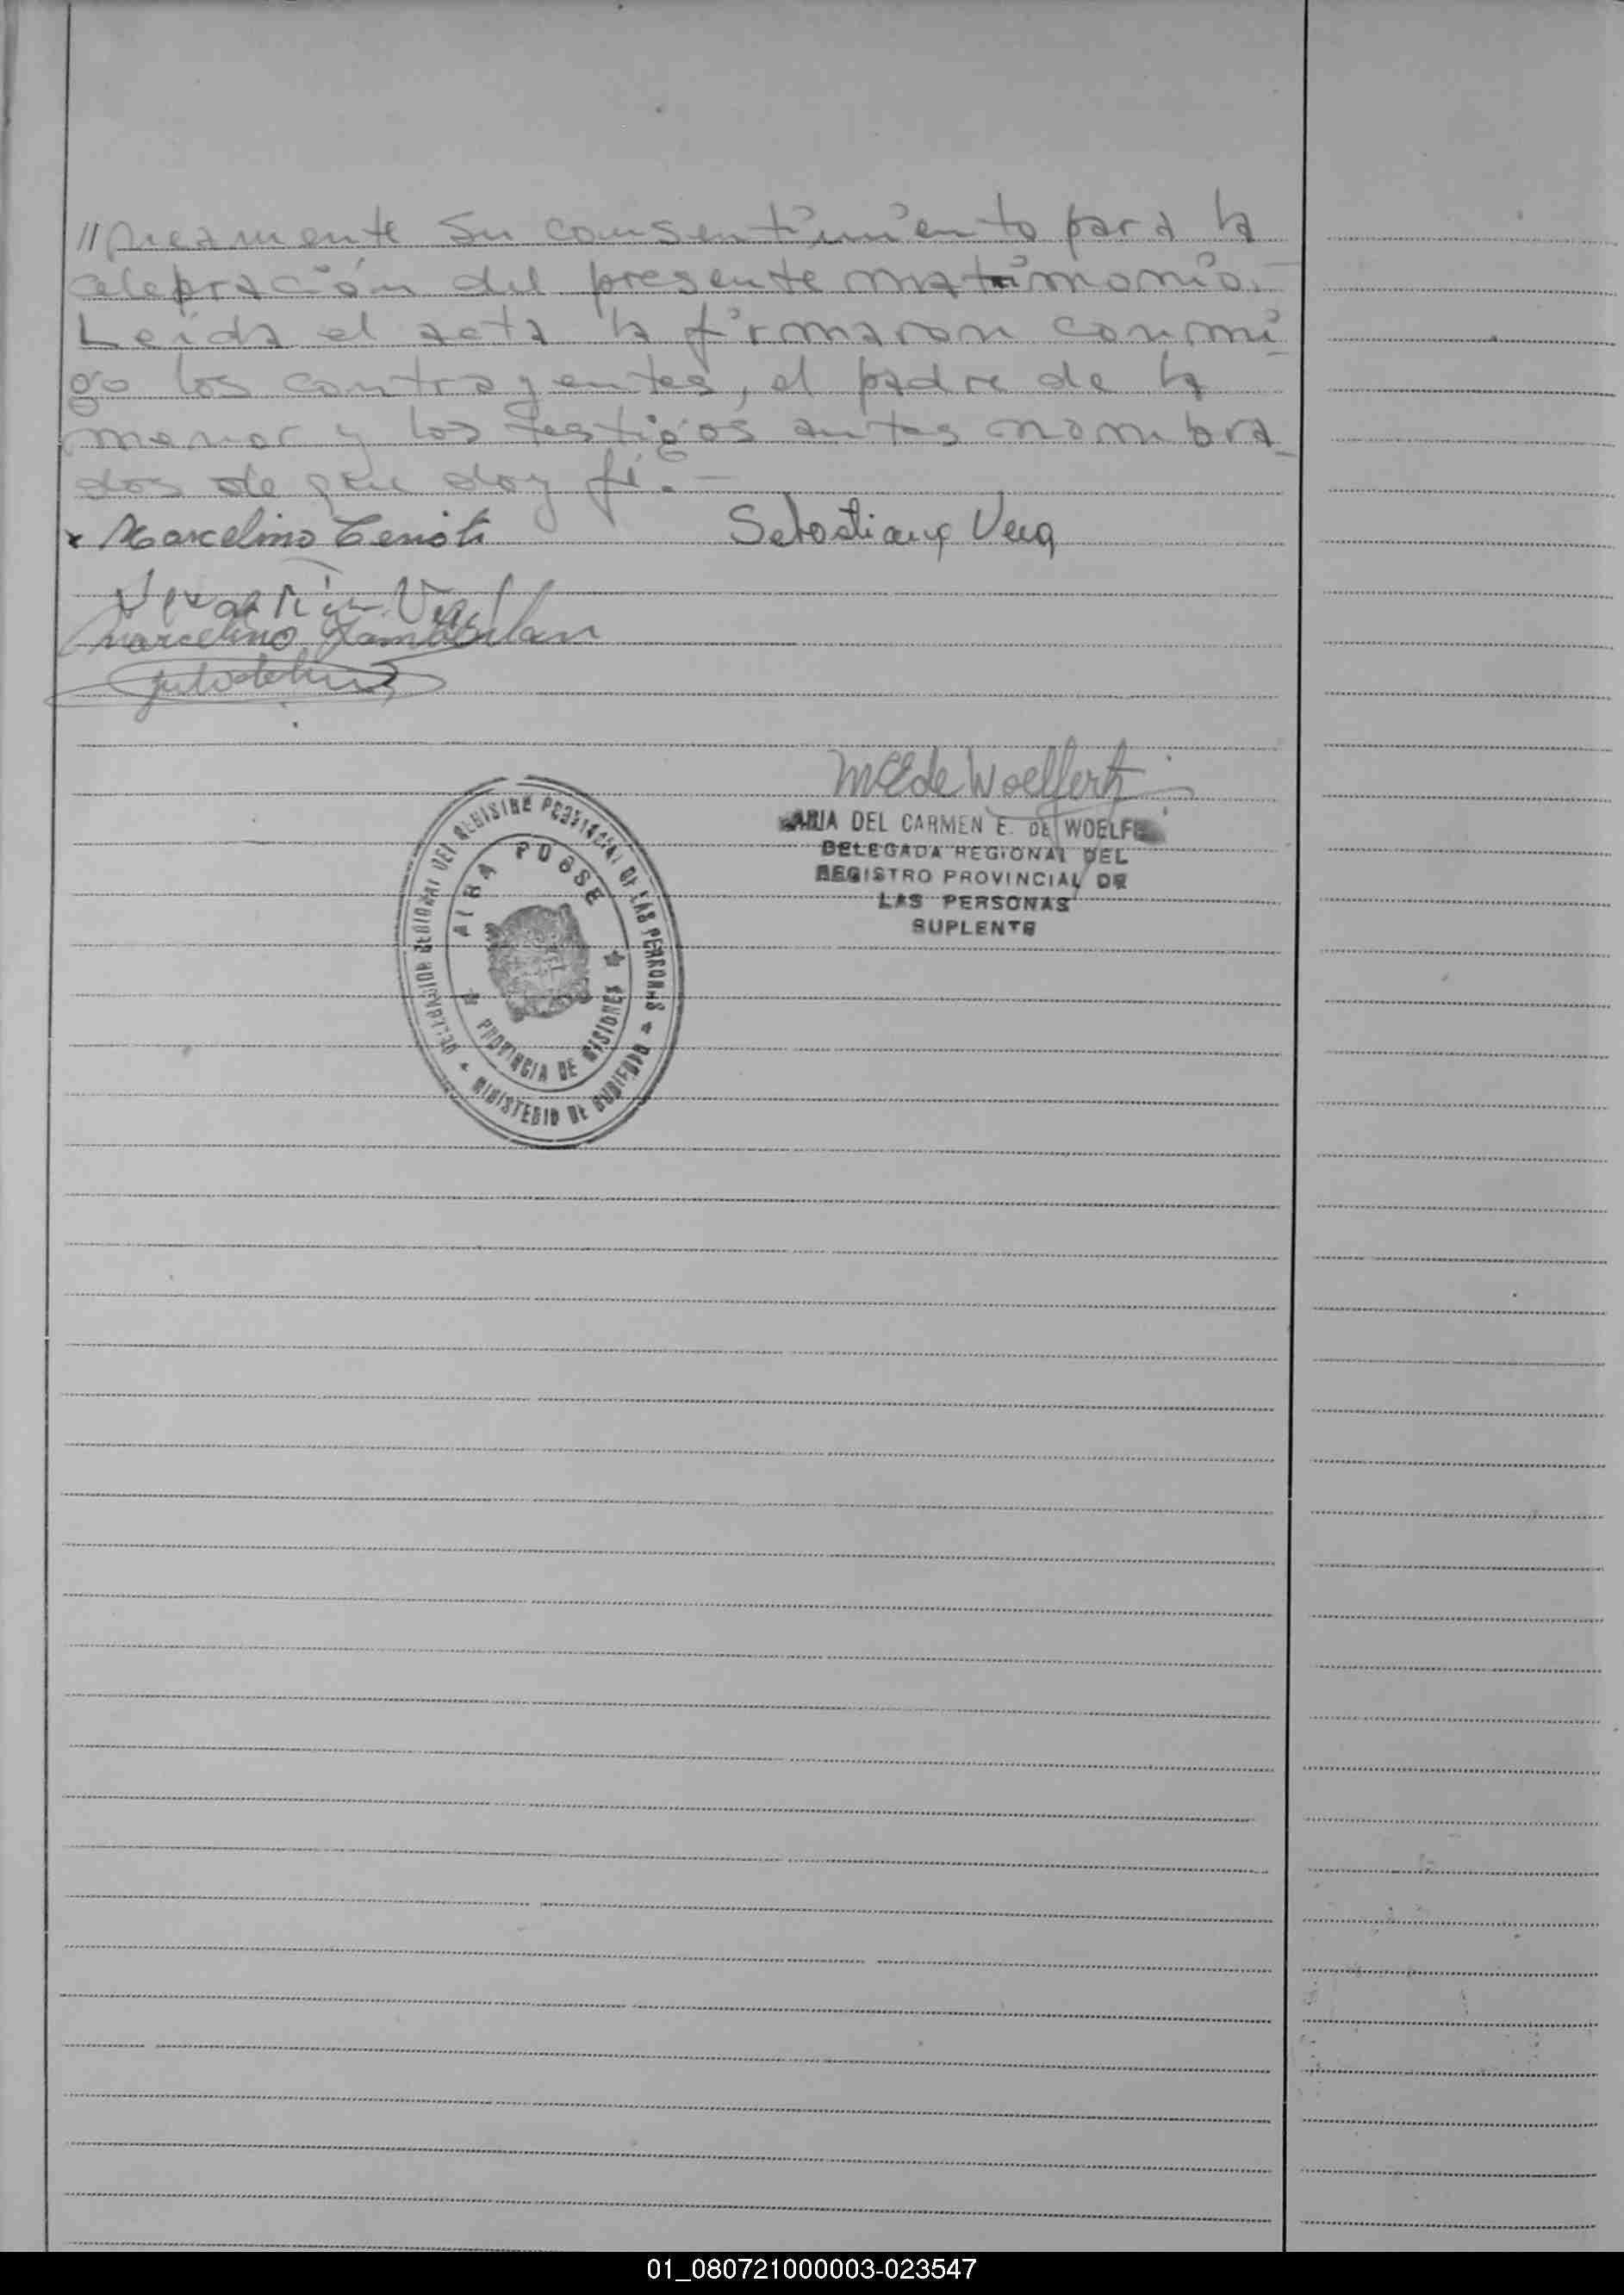 //presamente su consentimiento para la
celebración del presente matrimonio.-
Leída el acta la firmaron conmi
go los contrayentes, el padre de la
menor y los testigos antes nombra_
dos de que doy fé.-
x Marcelino Sebastiana Vera
Marcelino
MEde Woelfert
ARIA DEL CARMEN E. DE WOELFE
DELEGADA REGIONAL DEL
REGISTRO PROVINCIAL DE
LAS PERSONAS
SUPLENTE
DELEGACION REGIONAL DEL REGISTRO PROVINCIAL DE LAS PERSONAS
MINISTERIO DE GOBIERNO
ALBA POSSE
PROVINCIA DE MISIONES
01_080721000003-023547